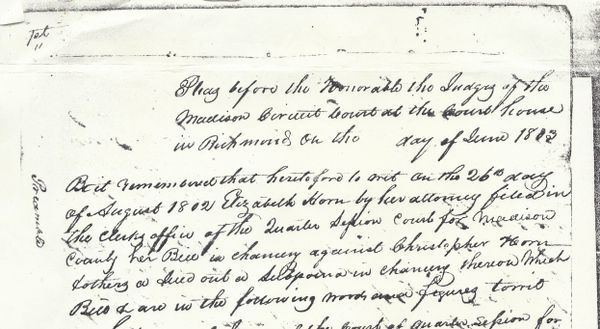 Pleas before the Honorable the Judges of the
Madison Circuit Court at the Court house
in Richmond on the day of June 1803
Preamble
Be it remembered that heretofore to wit on the 26th day
of August 1802 Elizabeth Horn by her attorney filed in
the Clerks office of the Quarter Session Court for Madison
County her Bill in chancery against Christopher Horn
& others & sued out a Subpoena in chancery thereon Which
Bill & are in the following words and figures towit
the Court of quarter Session for